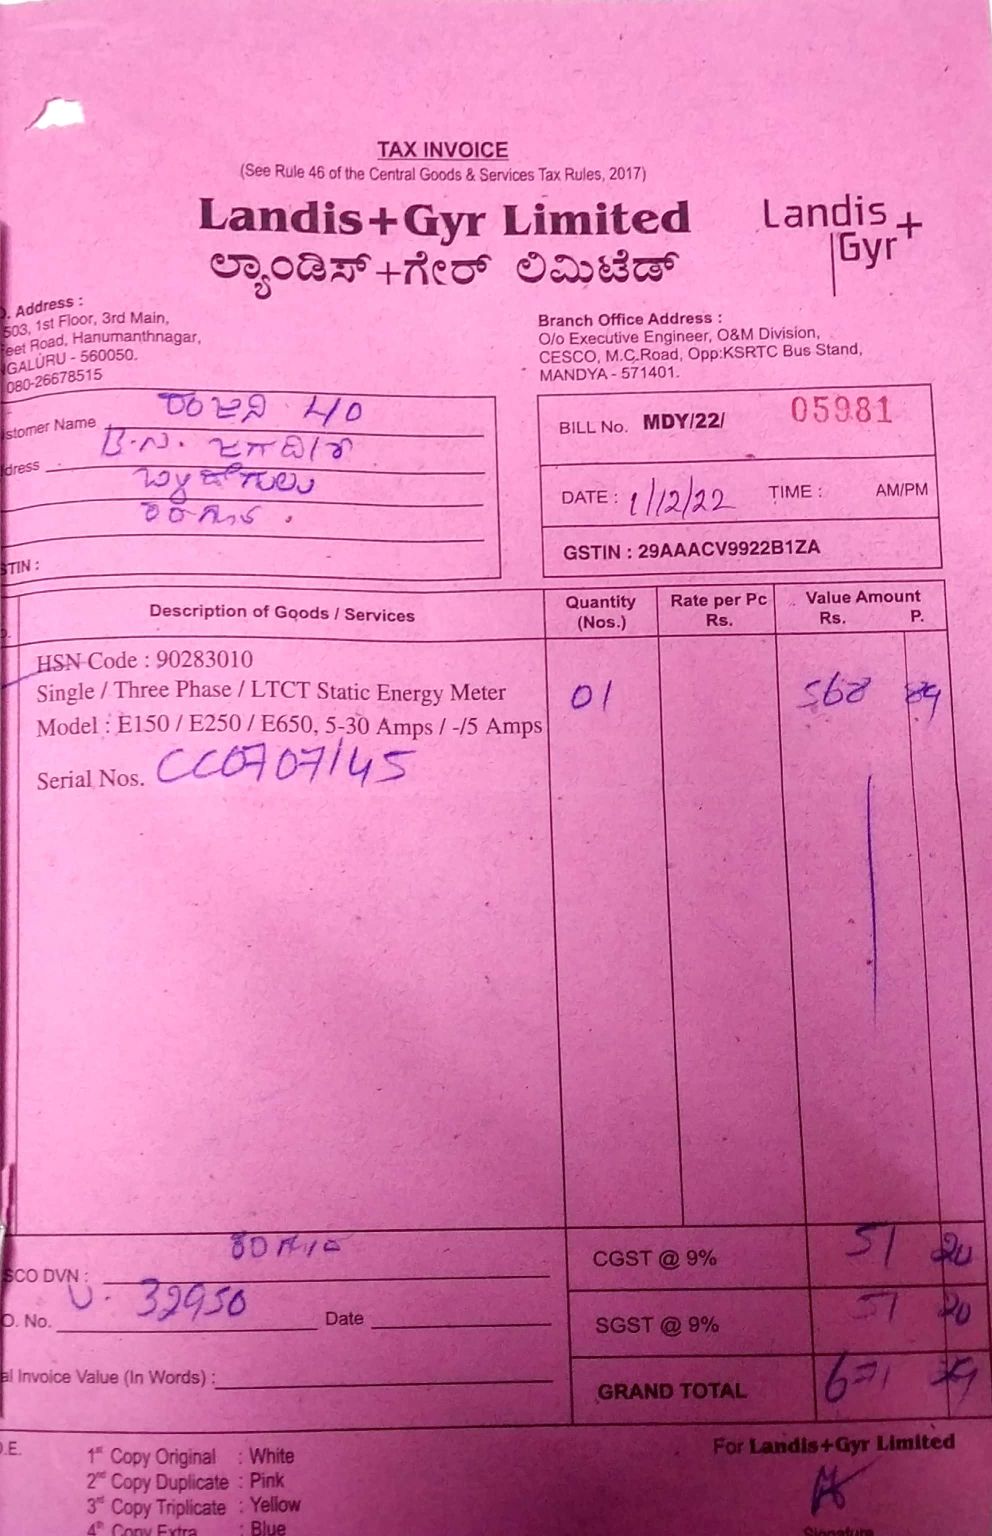 TAX INVOICE
(See Rule 46 of the Central Goods & Services Tax Rules, 2017)
Landis+Gyr Limited
ಲ್ಯಾಂಡಿಸ್+ಗೇರ್ ಲಿಮಿಟೆಡ್
Landis+
Gyr
. Address :
503, 1st Floor, 3rd Main,
eet Road, Hanumanthnagar,
GALURU - 560050.
080-26678515
Branch Office Address :
O/o Executive Engineer, O&M Division,
CESCO, M.C.Road, Opp:KSRTC Bus Stand,
MANDYA - 571401.
stomer Name
dress
STIN :
BILL No. MDY/22/ 05981
DATE : 1/12/22 TIME : AM/PM
GSTIN : 29AAACV9922B1ZA
Description of Goods / Services Quantity (Nos.) Rate per Pc Rs. Value Amount Rs. P.
HSN Code : 90283010
Single / Three Phase / LTCT Static Energy Meter 01 568 89
Model : E150 / E250 / E650, 5-30 Amps / -/5 Amps
Serial Nos. CC0707145
SCO DVN :
CGST @ 9% 51 20
O. No. 32950 Date
SGST @ 9% 51 20
al Invoice Value (In Words) :
GRAND TOTAL 671
O.E.
1st Copy Original : White
2nd Copy Duplicate : Pink
3rd Copy Triplicate : Yellow
4th Copy Extra : Blue
For Landis+Gyr Limited
Signature